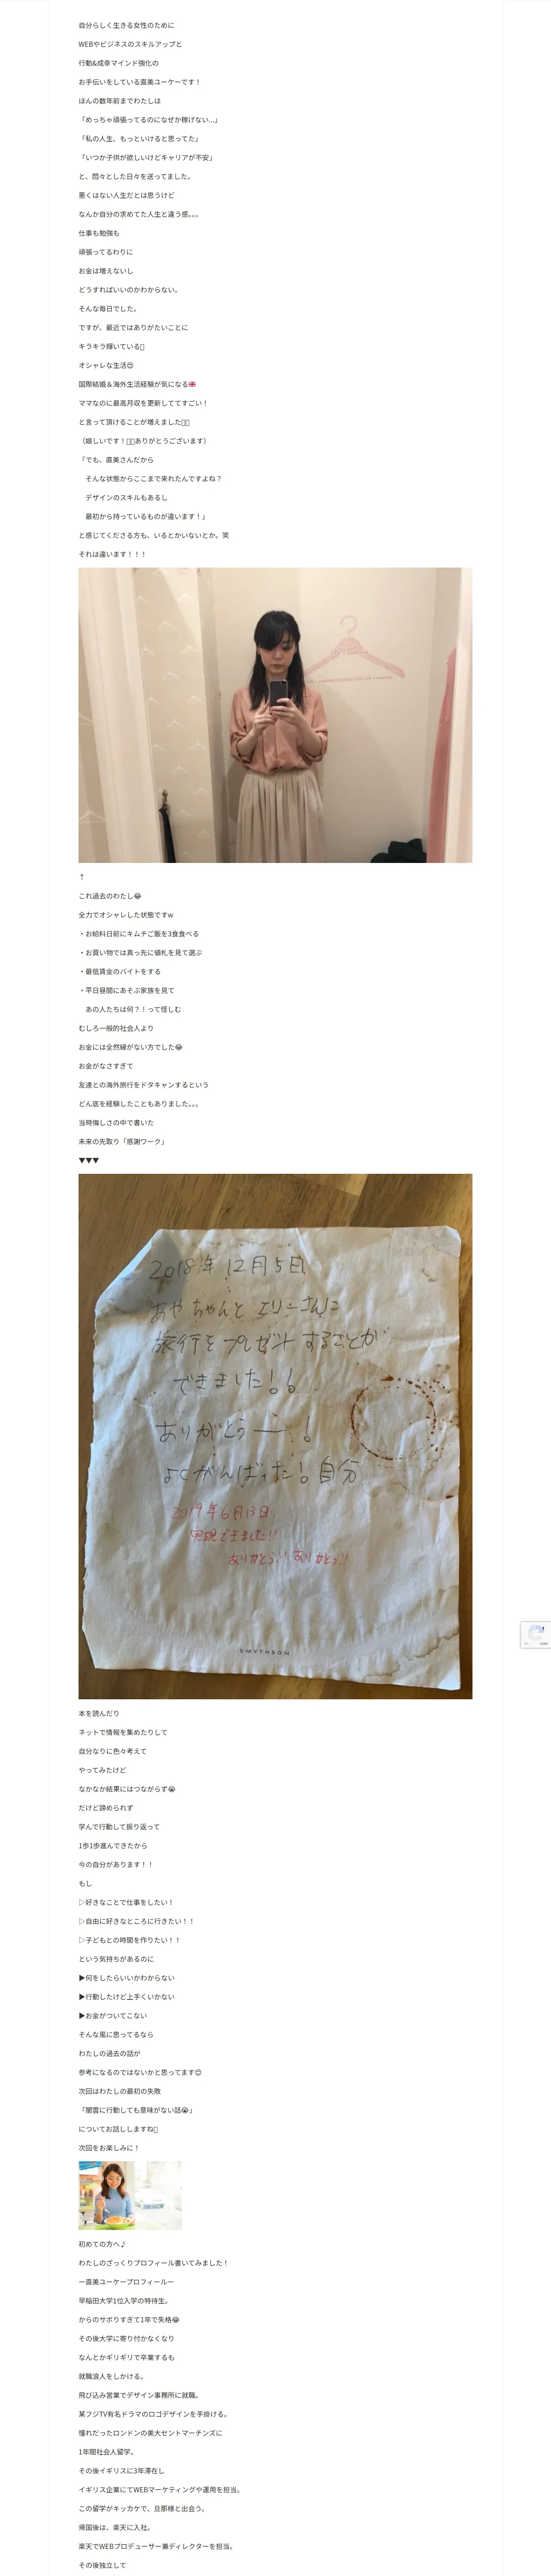 自分らしく生きる女性のために
WEBやビジネスのスキルアップと
行動&成幸マインド強化の
お手伝いをしている直美ユーケーです！
ほんの数年前までわたしは
「めっちゃ頑張ってるのになぜか稼げない...」
「私の人生、もっといけると思ってた」
「いつか子供が欲しいけどキャリアが不安」
と、悶々とした日々を送ってました。
悪くはない人生だとは思うけど
なんか自分の求めてた人生と違う感。。。
仕事も勉強も
頑張ってるわりに
お金は増えないし
どうすればいいのかわからない。
そんな毎日でした。
ですが、最近ではありがたいことに
キラキラ輝いている
オシャレな生活😍
国際結婚＆海外生活経験が気になる🇬🇧
ママなのに最高月収を更新しててすごい！
と言って頂けることが増えました
（嬉しいです！ありがとうございます）
「でも、直美さんだから
そんな状態からここまで来れたんですよね？
デザインのスキルもあるし
最初から持っているものが違います！」
と感じてくださる方も、いるとかいないとか。笑
それは違います！！！
↑
これ過去のわたし😂
全力でオシャレした状態ですw
・お給料日前にキムチご飯を3食食べる
・お買い物では真っ先に値札を見て選ぶ
・最低賃金のバイトをする
・平日昼間にあそぶ家族を見て
あの人たちは何？！って怪しむ
むしろ一般的社会人より
お金には全然縁がない方でした😂
お金がなさすぎて
友達との海外旅行をドタキャンするという
どん底を経験したこともありました。。。
当時悔しさの中で書いた
未来の先取り「感謝ワーク」
▼▼▼
2018年12月5日
あやちゃんとエリーさんに
旅行をプレゼントすることが
できました！！
ありがとうー！！
よくがんばった！自分
2019年6月13日
実現できました!!
ありがとう!! ありがとう!!
SMYTHSON
本を読んだり
ネットで情報を集めたりして
自分なりに色々考えて
やってみたけど
なかなか結果にはつながらず😭
だけど諦められず
学んで行動して振り返って
1歩1歩進んできたから
今の自分があります！！
もし
▷好きなことで仕事をしたい！
▷自由に好きなところに行きたい！！
▷子どもとの時間を作りたい！！
という気持ちがあるのに
▶何をしたらいいかわからない
▶行動したけど上手くいかない
▶お金がついてこない
そんな風に思ってるなら
わたしの過去の話が
参考になるのではないかと思ってます😊
次回はわたしの最初の失敗
「闇雲に行動しても意味がない話😭」
についてお話ししますね
次回をお楽しみに！
初めての方へ♪
わたしのざっくりプロフィール書いてみました！
ー直美ユーケープロフィールー
早稲田大学1位入学の特待生。
からのサボりすぎて1年で失格😂
その後大学に寄り付かなくなり
なんとかギリギリで卒業するも
就職浪人をしかける。
飛び込み営業でデザイン事務所に就職。
某フジTV有名ドラマのロゴデザインを手掛ける。
憧れだったロンドンの美大セントマーチンズに
1年間社会人留学。
その後イギリスに3年滞在し
イギリス企業にてWEBマーケティングや運用を担当。
この留学がキッカケで、旦那様と出会う。
帰国後は、楽天に入社。
楽天でWEBプロデューサー兼ディレクターを担当。
その後独立して